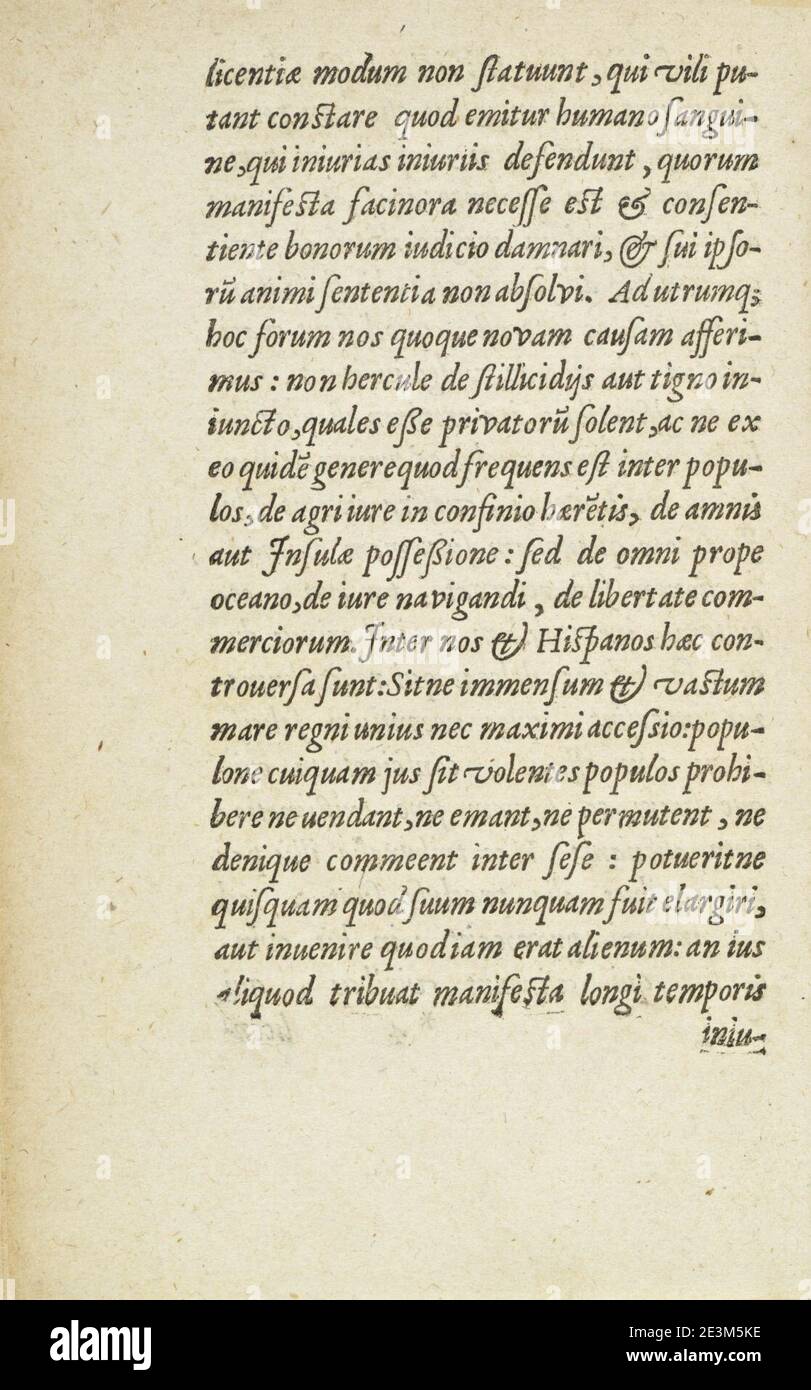 licentiæ modum non ſtatuunt, qui vili pu-
tant conſtare quod emitur humano ſangui-
ne, qui iniurias iniuriis defendunt, quorum
manifeſta facinora neceſſe eſt & conſen-
tiente bonorum iudicio damnari, & ſui ipſo-
rū animi ſententia non abſolvi. Ad utrumq;
hoc forum nos quoque novam cauſam afferi-
mus: non hercule de ſtillicidijs aut tigno in-
iuncto, quales eße privatorū ſolent, ac ne ex
eo quidē genere quod frequens eſt inter popu-
los, de agri iure in confinio hærētis, de amnis
aut Inſulæ poſſeßione: ſed de omni prope
oceano, de iure navigandi, de libertate com-
merciorum. Inter nos & Hiſpanos hæc con-
trouerſa ſunt: Sitne immenſum & vaſtum
mare regni unius nec maximi acceſsio: popu-
lone cuiquam jus ſit volentes populos prohi-
bere ne uendant, ne emant, ne permutent, ne
denique commeent inter ſeſe: potueritne
quiſquam quod ſuum nunquam fuit elargiri,
aut inuenire quod iam erat alienum: an ius
aliquod tribuat manifeſta longi temporis
iniu-
alamy
Image ID: 2E3M5KE
www.alamy.com